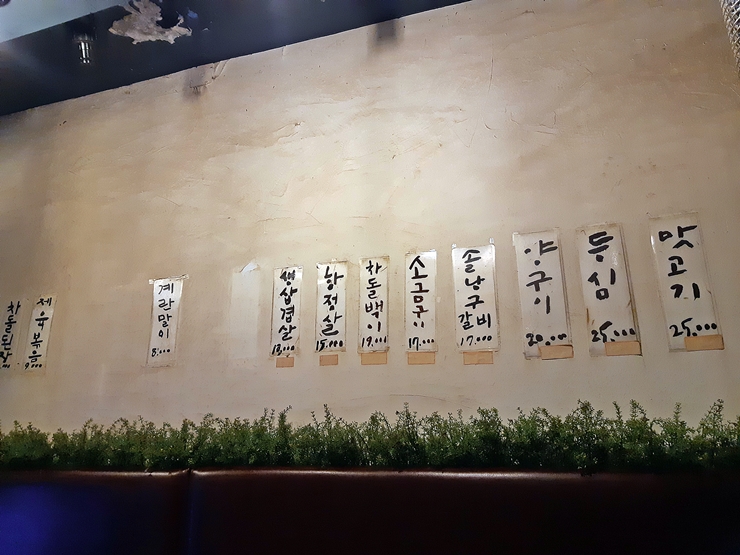 차돌된장
제육볶음
9.000
계란말이
8.000
생삼겹살
13.000
항정살
15.000
차돌백이
19.000
소금구이
17.000
솔낭구갈비
17.000
양구이
20.000
등심
25.000
맛고기
25.000